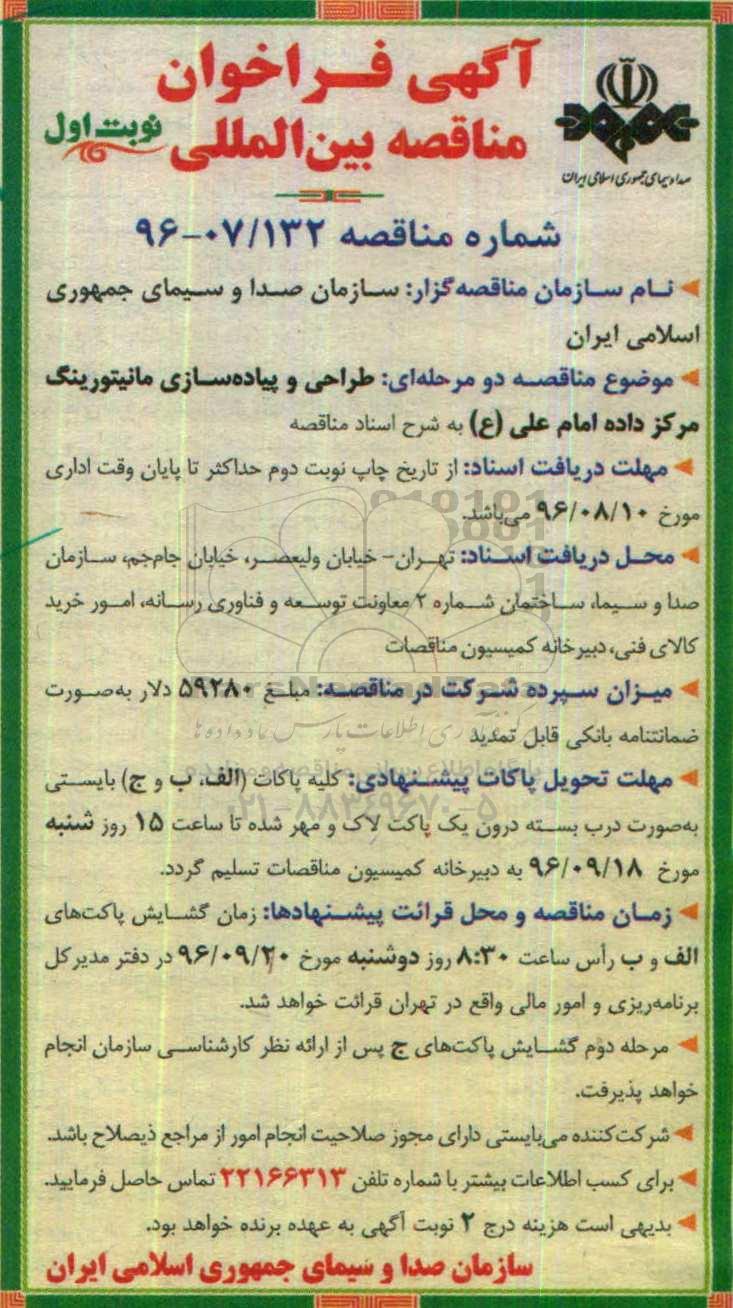 آگهی فراخوان
مناقصه بین‌المللی
نوبت اول
صدا و سیمای جمهوری اسلامی ایران
شماره مناقصه ۹۶-۰۷/۱۳۲
نام سازمان مناقصه‌گزار: سازمان صدا و سیمای جمهوری
اسلامی ایران
موضوع مناقصه دو مرحله‌ای: طراحی و پیاده‌سازی مانیتورینگ
مرکز داده امام علی (ع) به شرح اسناد مناقصه
مهلت دریافت اسناد: از تاریخ چاپ نوبت دوم حداکثر تا پایان وقت اداری
مورخ ۹۶/۰۸/۱۰ می‌باشد.
محل دریافت اسناد: تهران- خیابان ولیعصر، خیابان جام‌جم، سازمان
صدا و سیما، ساختمان شماره ۲ معاونت توسعه و فناوری رسانه، امور خرید
کالای فنی، دبیرخانه کمیسیون مناقصات
میزان سپرده شرکت در مناقصه: مبلغ ۵۹۲۸۰ دلار به‌صورت
ضمانتنامه بانکی قابل تمدید
مهلت تحویل پاکات پیشنهادی: کلیه پاکات (الف، ب و ج) بایستی
به‌صورت درب بسته درون یک پاکت لاک و مهر شده تا ساعت ۱۵ روز شنبه
مورخ ۹۶/۰۹/۱۸ به دبیرخانه کمیسیون مناقصات تسلیم گردد.
زمان مناقصه و محل قرائت پیشنهادها: زمان گشایش پاکت‌های
الف و ب رأس ساعت ۸:۳۰ روز دوشنبه مورخ ۹۶/۰۹/۲۰ در دفتر مدیرکل
برنامه‌ریزی و امور مالی واقع در تهران قرائت خواهد شد.
مرحله دوم گشایش پاکت‌های ج پس از ارائه نظر کارشناسی سازمان انجام
خواهد پذیرفت.
شرکت‌کننده می‌بایستی دارای مجوز صلاحیت انجام امور از مراجع ذیصلاح باشد.
برای کسب اطلاعات بیشتر با شماره تلفن ۲۲۱۶۶۳۱۳ تماس حاصل فرمایید.
بدیهی است هزینه درج ۲ نوبت آگهی به عهده برنده خواهد بود.
سازمان صدا و سیمای جمهوری اسلامی ایران